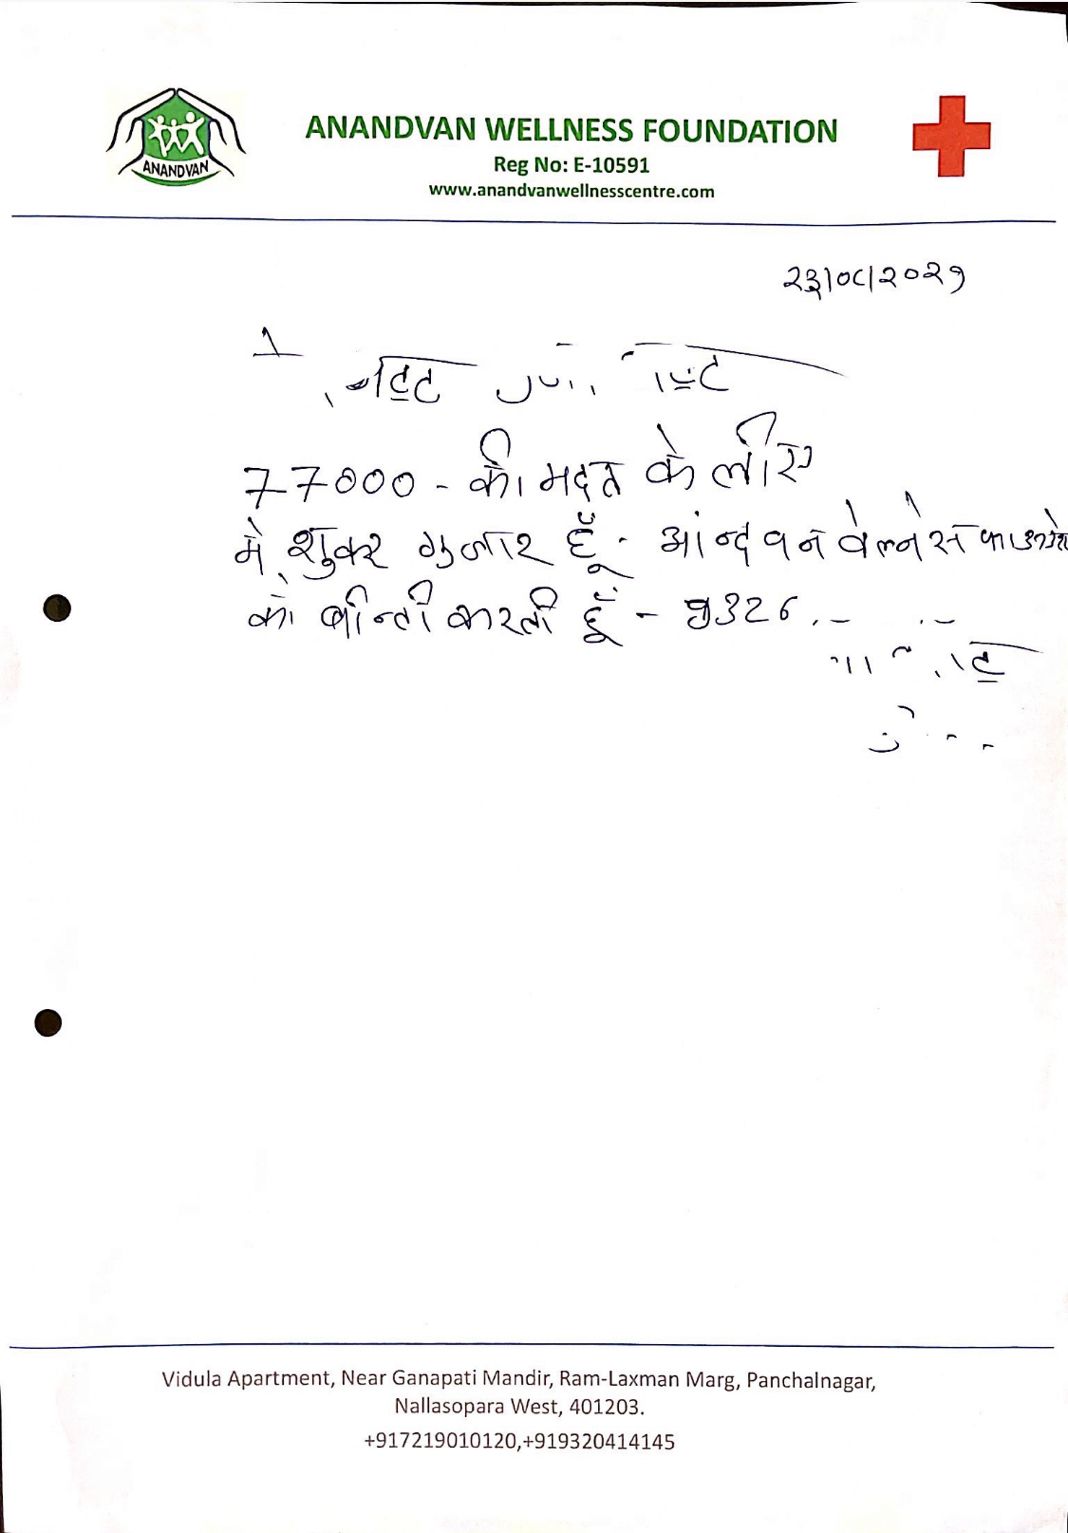 ANANDVAN
ANANDVAN WELLNESS FOUNDATION
Reg No: E-10591
www.anandvanwellnesscentre.com
२३/०८/२०२१
77000 - की मदत के लीए
मे शुक्र गुजार हूँ - आंन्दवन वेल्नेस
को वीन्ती करती हूँ - 9326
Vidula Apartment, Near Ganapati Mandir, Ram-Laxman Marg, Panchalnagar,
Nallasopara West, 401203.
+917219010120,+919320414145